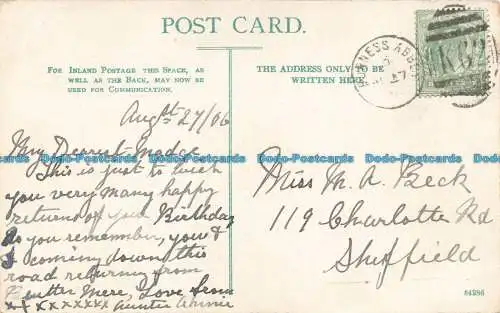 POST CARD.
FOR INLAND POSTAGE THIS SPACE, AS
WELL AS THE BACK, MAY NOW BE
USED FOR COMMUNICATION.
THE ADDRESS ONLY TO BE
WRITTEN HERE.
FURNESS ABBEY
Augst 27/06
My Dearest Madge
This is just to wish
you very many happy
returns of your Birthday
Do you remember, you &
I coming down this
road returning from
Buttermere, Love from
xxxxxxxxx Auntie Annie
Miss M. A. Beck
119 Charlotte Rd
Sheffield
84286
Dodo-Postcards Dodo-Postcards Dodo-Postcards Dodo-Postcards Dodo-Postcards